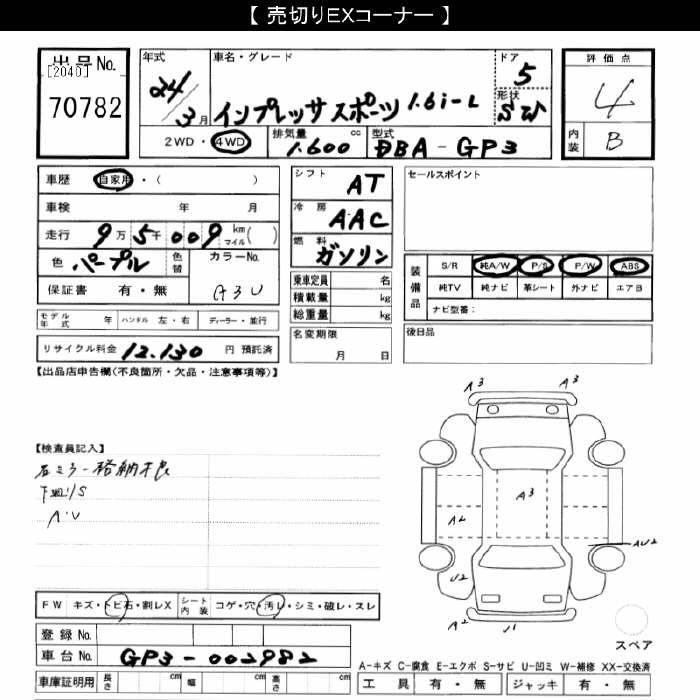 【 売切りEXコーナー 】
出品No.
[2040]
70782
年式
24/3月
車名・グレード
インプレッサスポーツ 1.6i-L
ドア
5
形状
SW
評価点
4
内装
B
2WD・4WD
排気量 1.600 cc
型式 DBA-GP3
車歴 自家用・( )
車検 年 月
走行 9万5千009 km マイル( )
色 パープル
色替
カラーNo.
A3U
保証書 有・無
モデル年式 年 ハンドル 左・右 ディーラー・並行
リサイクル料金 12.130 円 預託済
シフト AT
冷房 AAC
燃料 ガソリン
乗車定員 名
積載量 kg
総重量 kg
名変期限
月 日
セールスポイント
装備品
S/R 純A/W P/S P/W ABS
純TV 純ナビ 革シート 外ナビ エアB
ナビ型番:
後日品
【出品店申告欄(不良箇所・欠品・注意事項等)】
【検査員記入】
右ミラー格納不良
下廻りS
A・U
A3 A3
A3
A2
AU2
U2
A2 U1
スペア
FW キズ・トビ石・割レX シート内装 コゲ・穴・汚レ・シミ・破レ・スレ
登録No.
車台No. GP3-002982
車庫証明用 長さ cm 幅 cm 高さ cm
A-キズ C-腐食 E-エクボ S-サビ U-凹ミ W-補修 XX-交換済
工具 有・無 ジャッキ 有・無